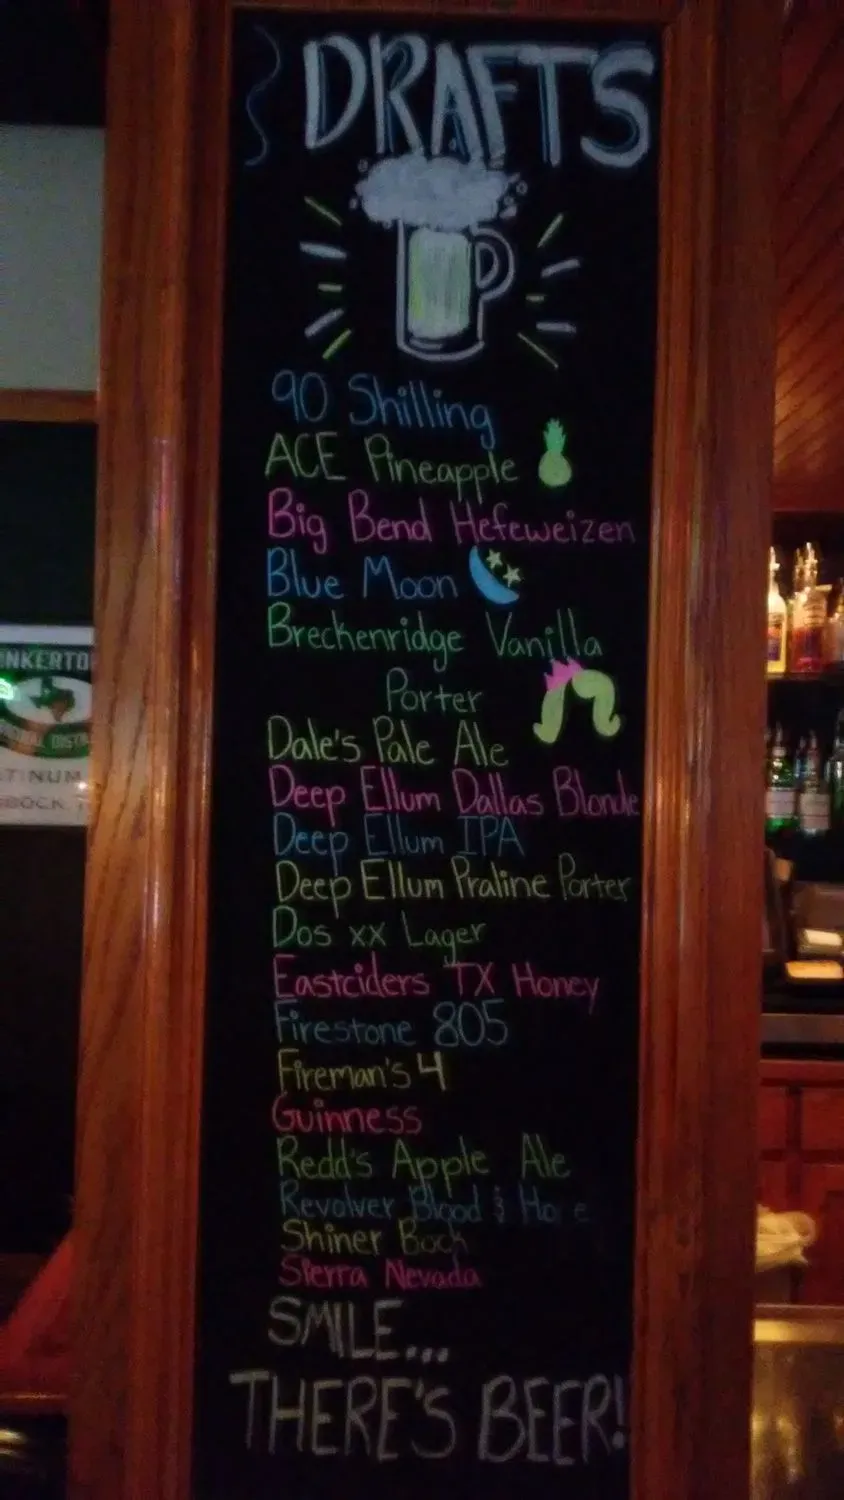 DRAFTS
90 Shilling
ACE Pineapple
Big Bend Hefeweizen
Blue Moon
Breckenridge Vanilla
Porter
Dale's Pale Ale
Deep Ellum Dallas Blonde
Deep Ellum IPA
Deep Ellum Praline Porter
Dos xx Lager
Eastciders TX Honey
Firestone 805
Fireman's 4
Guinness
Redd's Apple Ale
Revolver Blood &
Shiner Bock
Sierra Nevada
SMILE...
THERE'S BEER!
NKERTO
TINUM